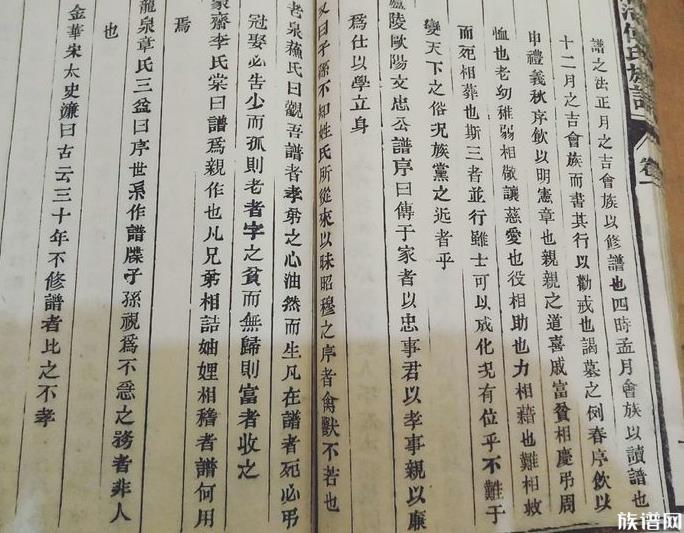 氏族譜
卷一
譜之法正月之吉會族以修譜也四時孟月會族以讀譜也
十二月之吉會族而書其行以勸戒也謁墓之例春序飲以
申禮義秋序飲以明憲章也親親之道喜戚富貧相慶弔周
恤也老幼稚弱相敬讓慈愛也役相助也力相藉也難相救
而死相葬也斯三者並行雖士可以成化況有位乎不難于
變天下之俗況族黨之近者乎
廬陵歐陽文忠公譜序曰傳于家者以忠事君以孝事親以廉
爲仕以學立身
又曰子孫不知姓氏所從來以昧昭穆之序者禽獸不若也
老泉蘓氏曰觀吾譜者孝弟之心油然而生凡在譜者死必弔
冠娶必告少而孤則老者字之貧而無歸則富者收之
齋李氏棠曰譜爲親作也凡兄弟相詰妯娌相稽者譜何用
焉
龍泉章氏三益曰序世系作譜牒子孫視爲不急之務者非人
也
金華宋太史濂曰古云三十年不修譜者比之不孝
族谱网